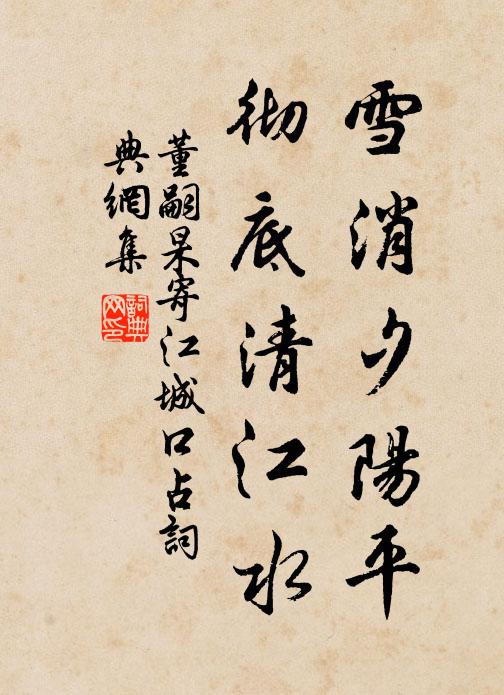 雪消夕陽平
彻底清江水
董嗣杲寄江城口占詞
典網集
詞典网印